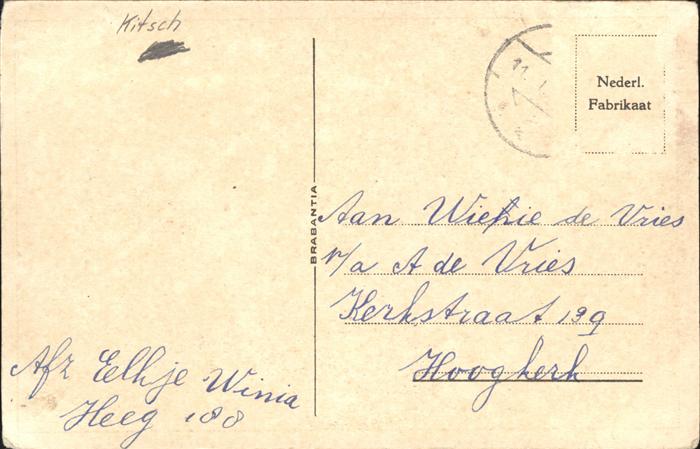 Kitsch
11.
Nederl.
Fabrikaat
BRABANTIA
Aan Wiepie de Vries
p/a A de Vries
Kerkstraat 139
Hoogkerk
Afz Elkje Winia
Heeg 188